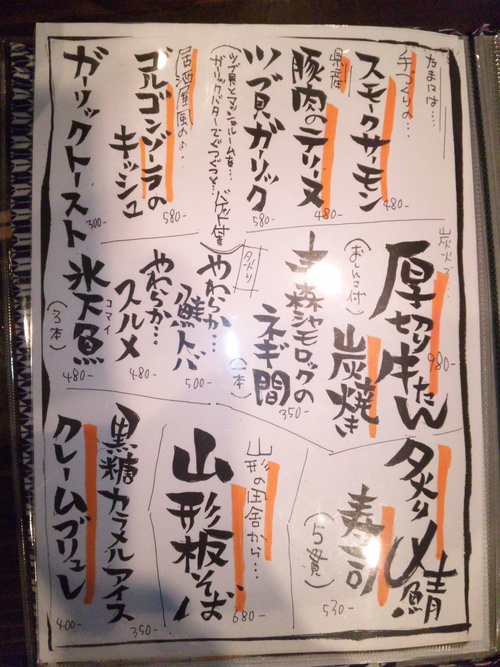 たまには…
手づくりの…
スモークサーモン
480-
県産
豚肉のテリーヌ
480-
ツブ貝ガーリック
(ツブ貝とマッシュルームを…
ガーリックバターでぐつぐつと…
バゲット付)
580-
居酒屋風のよ…
ゴルゴンゾーラの
キッシュ
580-
ガーリックトースト
300-
炭火で…
厚切り牛たん
炭焼き
(おしんこ付)
980-
青森シャモロックの
ネギ間
(一本)
350-
炙り
やわらか…
鮭トバ
500-
やわらか…
スルメ
480-
氷下魚
コマイ
(3本)
480-
炙り〆鯖
寿司
(5貫)
530-
山形の田舎から…
山形板そば
680-
黒糖カラメルアイス
350-
クレームブリュレ
400-